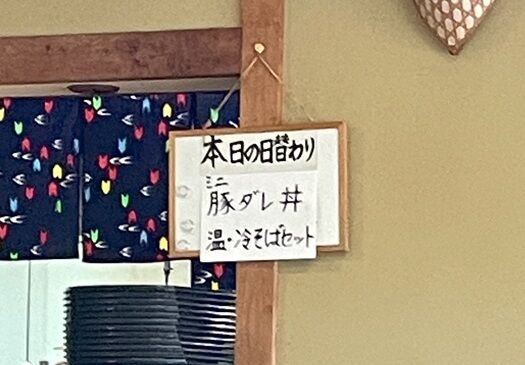 本日の日替わり
ミニ
豚ダレ丼
温・冷そばセット